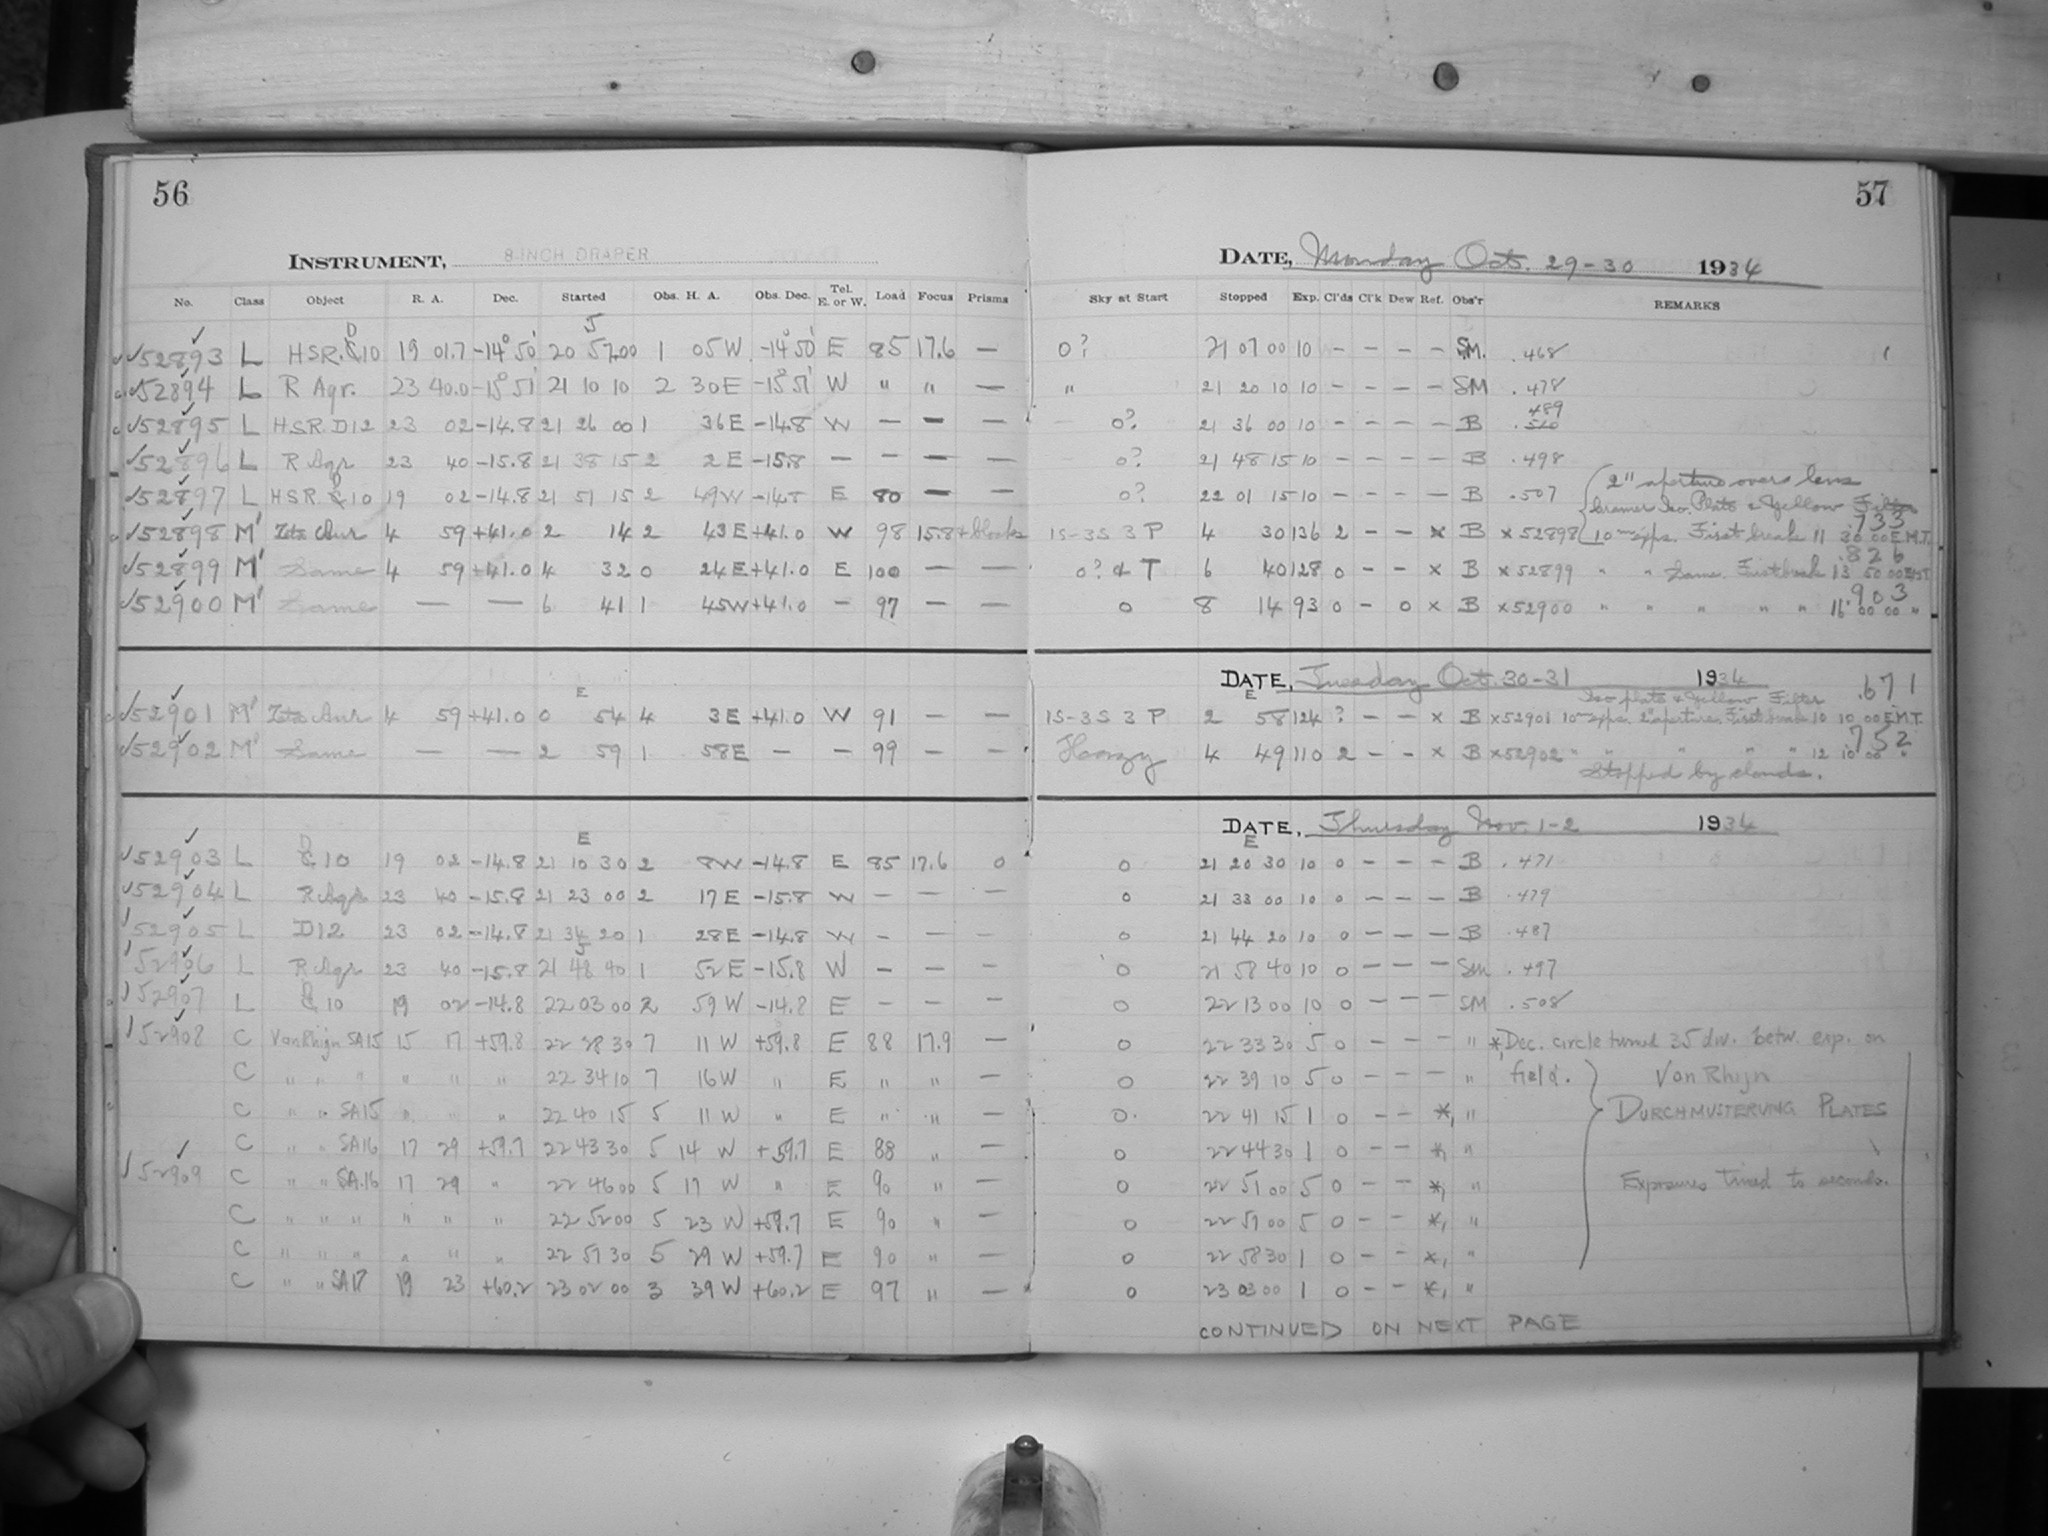 56
INSTRUMENT, 8-INCH DRAPER
No. Class Object R. A. Dec. Started Obs. H. A. Obs. Dec. Tel. E. or W. Load Focus Prisms
52893 L HSR. 10 19 01.7 -14° 50' 20 57 00 1 05 W -14° 50' E 85 17.6 —
52894 L R Aqr. 23 40.0 -15° 51' 21 10 10 2 30 E -15° 51' W " " —
52895 L H.S.R. D12 23 02 -14.8 21 26 00 1 36 E -14.8 W — — —
52896 L R Aqr 23 40 -15.8 21 38 15 2 2 E -15.8 — — — —
52897 L HSR 10 19 02 -14.8 21 51 15 2 49 W -14.8 E 80 — —
52898 M' Zeta Aur 4 59 +41.0 2 14 2 43 E +41.0 W 98 15.8 + blocks
52899 M' Same 4 59 +41.0 4 32 0 24 E +41.0 E 100 — —
52900 M' Same — — 6 41 1 45 W +41.0 — 97 — —
52901 M' Zeta Aur 4 59 +41.0 0 54 4 3 E +41.0 W 91 — —
52902 M' Same — — 2 59 1 58 E — — 99 — —
E
52903 L 10 19 02 -14.8 21 10 30 2 8 W -14.8 E 85 17.6 0
52904 L R Aqr 23 40 -15.8 21 23 00 2 17 E -15.8 W — — —
52905 L D12 23 02 -14.8 21 34 20 1 28 E -14.8 W - — —
52906 L R Aqr 23 40 -15.8 21 48 40 1 52 E -15.8 W — — —
52907 L 10 19 02 -14.8 22 03 00 2 59 W -14.8 E — — —
52908 C Van Rhijn SA15 15 17 +59.8 22 28 30 7 11 W +59.8 E 88 17.9 —
C " " " " " " 22 34 10 7 16 W " E " " —
C " " SA15 " " " 22 40 15 5 11 W " E " " —
C " " SA16 17 29 +59.7 22 43 30 5 14 W +59.7 E 88 " —
52909 C " " SA.16 17 29 " 22 46 00 5 17 W " E 90 " —
C " " " " " " 22 52 00 5 23 W +59.7 E 90 " —
C " " " " " " 22 57 30 5 29 W +59.7 E 90 " —
C " " SA17 19 23 +60.2 23 02 00 3 39 W +60.2 E 97 " —
57
DATE, Monday Oct. 29-30 1934
Sky at Start Stopped Exp. Cl'ds Cl'k Dew Ref. Obs'r REMARKS
0? 21 07 00 10 — — — — SM. .468
" 21 20 10 10 — — — — SM .478
0? 21 36 00 10 — — — — B .489
0? 21 48 15 10 — — — — B .498
0? 22 01 15 10 — — — — B .507 2" aperture over lens
Cramer Iso. Plate & Yellow Filter
1S-3S 3 P 4 30 136 2 — — x B x52898 10 m exps. First break 11 30 00 E.M.T. .733
0? & T 6 40 128 0 — — x B x52899 " " Same. First break 13 50 00 .826
0 8 14 93 0 — 0 x B x52900 " " " " " 16 00 00 " .903
DATE, Tuesday Oct. 30-31 1934 .671
E
Iso plate & Yellow Filter
1S-3S 3 P 2 58 124 ? — — x B x52901 10 m exps. 2" aperture. First break 10 10 00 E.M.T.
Hazy 4 49 110 2 — — x B x52902 " " " " " 12 10 00 " .752
Stopped by clouds.
DATE, Thursday Nov. 1-2 1934
E
0 21 20 30 10 0 — — — B .471
0 21 33 00 10 0 — — — B .479
0 21 44 20 10 0 — — — B .487
0 21 58 40 10 0 — — — SM .497
0 22 13 00 10 0 — — — SM .508
0 22 33 30 5 0 — — — " *, Dec. circle turned 35 div. betw. exp. on
0 22 39 10 5 0 — — — " field. Van Rhijn
0 22 41 15 1 0 — — *, " DURCHMUSTERUNG PLATES
0 22 44 30 1 0 — — *, "
0 22 51 00 5 0 — — *, " Exposures timed to seconds.
0 22 57 00 5 0 — — *, "
0 22 58 30 1 0 — — *, "
0 23 03 00 1 0 — — *, "
CONTINUED ON NEXT PAGE